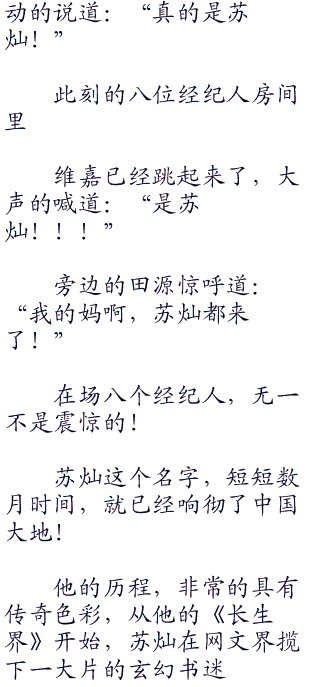 动的说道：“真的是苏
灿！”
此刻的八位经纪人房间
里
维嘉已经跳起来了，大
声的喊道：“是苏
灿！！！”
旁边的田源惊呼道：
“我的妈啊，苏灿都来
了！”
在场八个经纪人，无一
不是震惊的！
苏灿这个名字，短短数
月时间，就已经响彻了中国
大地！
他的历程，非常的具有
传奇色彩，从他的《长生
界》开始，苏灿在网文界揽
下一大片的玄幻书迷